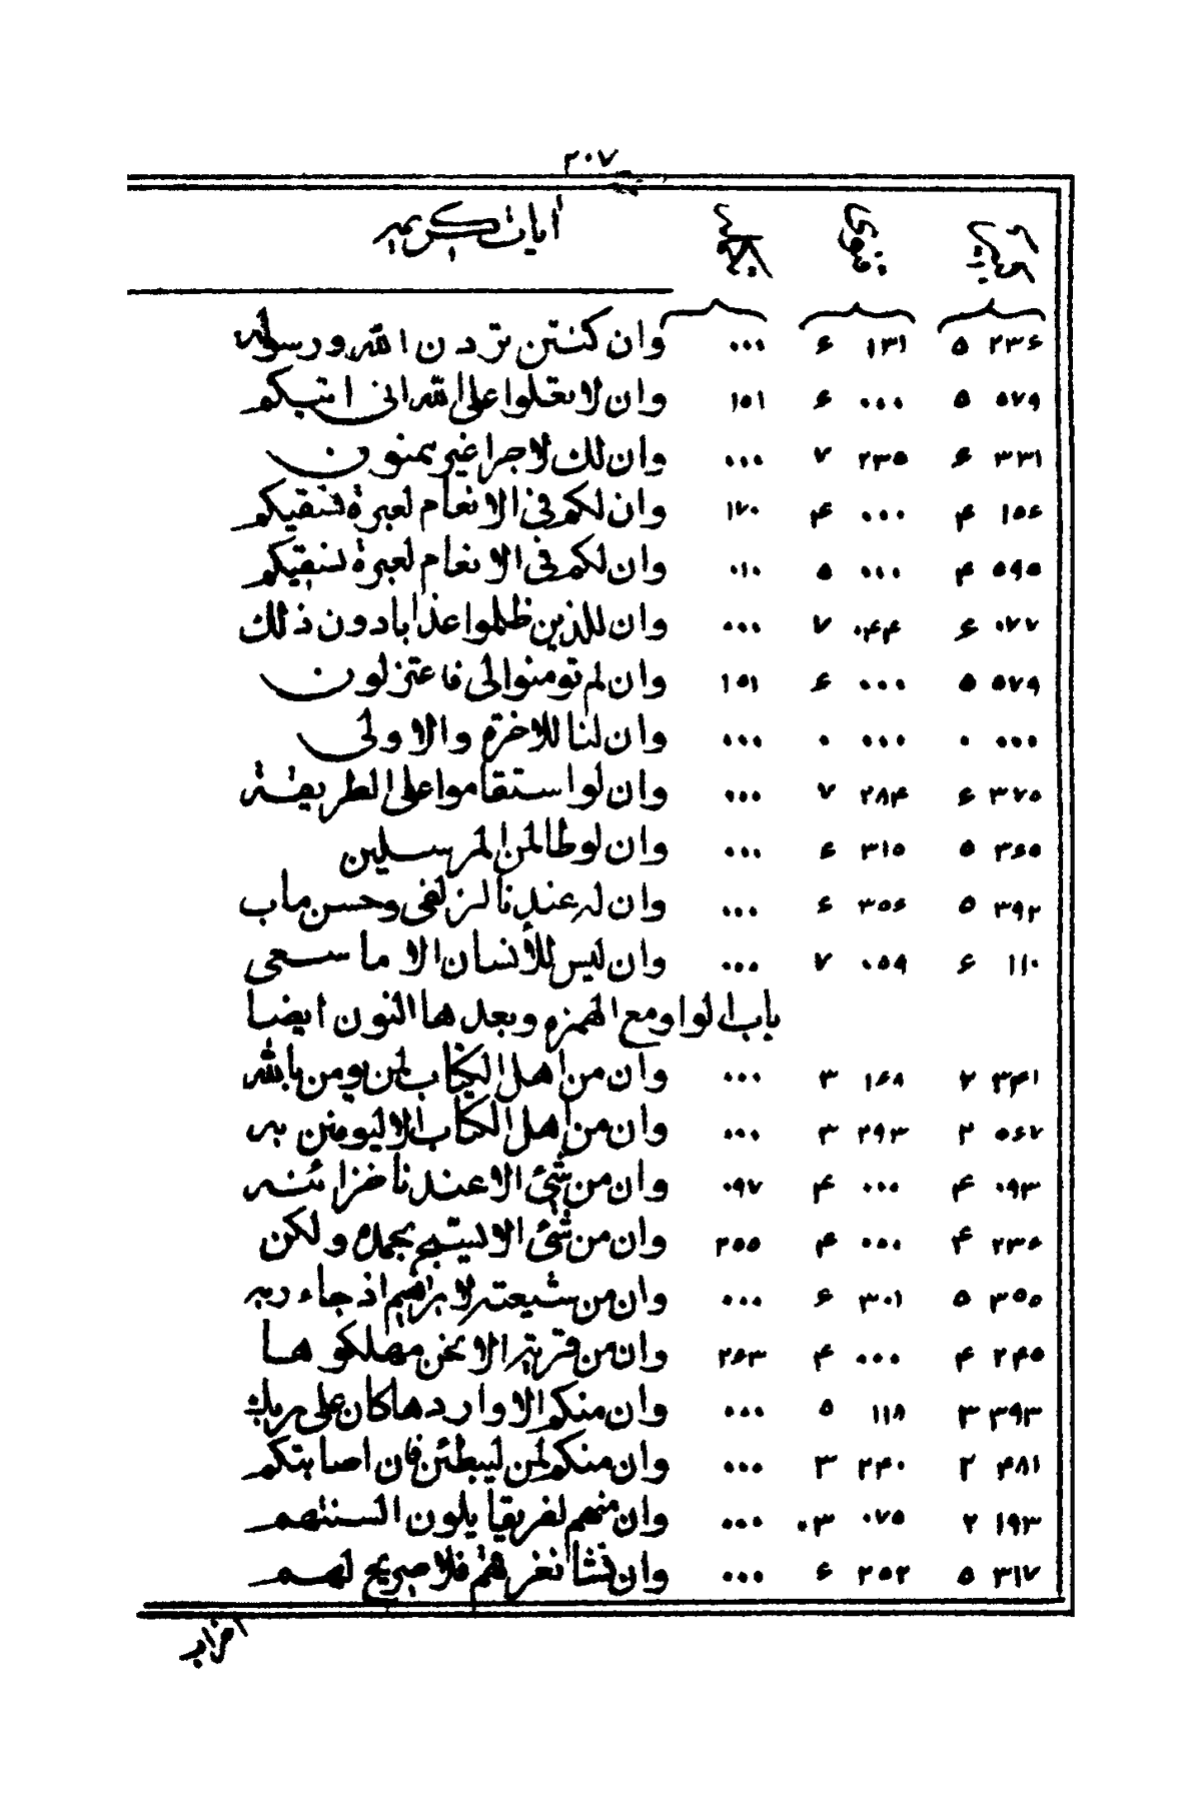 ٢٠٧
آیات کریمه
٢٣۶ ۵ ١٣١ ۶ ٠٠٠ وان کنتن تردن الله ورسوله
۵٧٩ ۵ ٠٠٠ ۶ ١۵١ وان لا تعلوا علی الله انی اتیکم
٣٣١ ۶ ٢٣۵ ٧ ٠٠٠ وان لک لاجرا غیر ممنون
١۵۶ ۴ ٠٠٠ ۴ ١٧٠ وان لکم فی الانعام لعبرة نسقیکم
۵٩۵ ۴ ٠٠٠ ۵ ٠١٠ وان لکم فی الانعام لعبرة نسقیکم
٠٧٧ ۶ ٠۴۴ ٧ ٠٠٠ وان للذین ظلموا عذابا دون ذلک
۵٧٩ ۵ ٠٠٠ ۶ ١۵١ وان لم تومنوا لی فاعتزلون
٠٠٠ ٠ ٠٠٠ ٠ ٠٠٠ وان لنا للاخرة والاولی
٣٧۵ ۶ ٢٨۴ ٧ ٠٠٠ وان لو استقاموا علی الطریقة
٣۶۵ ۵ ٣١۵ ۶ ٠٠٠ وان لوطا لمن المرسلین
٣٩٢ ۵ ٣۵۶ ۶ ٠٠٠ وان له عندنا لزلفی وحسن ماب
١١٠ ۶ ٠۵٩ ٧ ٠٠٠ وان لیس للأنسان الا ما سعی
باب الواو مع الهمزه وبعدها النون ایضا
٣۴١ ٢ ١۶٨ ٣ ٠٠٠ وان من اهل الکتاب لمن یومن بالله
۵۶٧ ٢ ٢٩٣ ٣ ٠٠٠ وان من اهل الکتاب الا لیومنن به
٠٩٣ ۴ ٠٠٠ ۴ ٠٩٧ وان من شئ الا عندنا خزائنه
٢٣۶ ۴ ٠٠٠ ۴ ٢۵۵ وان من شئ الا یسبح بحمده ولکن
٣۵۵ ۵ ٣٠١ ۶ ٠٠٠ وان من شیعته لابراهیم اذ جاء ربه
٢۴۵ ۴ ٠٠٠ ۴ ٢۶٣ وان من قریة الا نحن مهلکوها
٣٩٣ ٣ ١١٨ ۵ ٠٠٠ وان منکم الا واردها کان علی ربک
۴٨١ ٢ ٢۴٠ ٣ ٠٠٠ وان منکم لمن لیبطئن فان اصابتکم
١٩٣ ٢ ٠٧۵ ٣ ٠٠٠ وان منهم لفریقا یلون السنتهم
٣١٧ ۵ ٢۵٢ ۶ ٠٠٠ وان نشأ نغرقهم فلا صریخ لهم